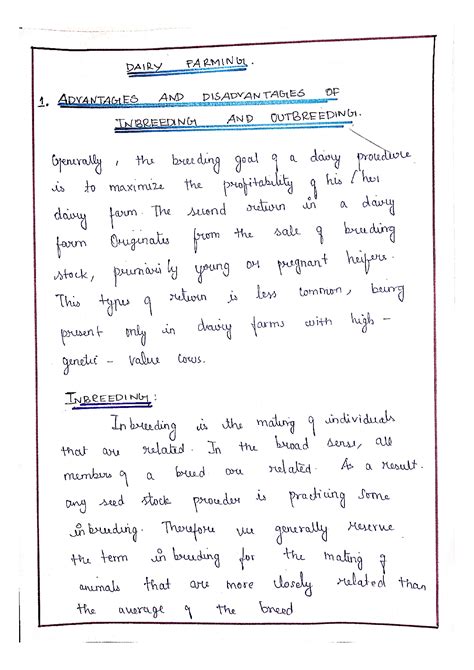 DAIRY FARMING.
1. ADVANTAGES AND DISADVANTAGES OF
INBREEDING AND OUTBREEDING.
Generally, the breeding goal of a dairy procedure
is to maximize the profitability of his / her
dairy farm. The second return in a dairy
farm Originates from the sale of breeding
stock, primarily young or pregnant heifers.
This types of return is less common, being
present only in dairy farms with high -
genetic - value cows.
INBREEDING:
Inbreeding is the mating of individuals
that are related. In the broad sense, all
members of a breed are related. As a result.
any seed stock prouder is practicing some
inbreeding. Therefore we generally reserve
the term inbreeding for the mating of
animals that are more closely related than
the average of the breed